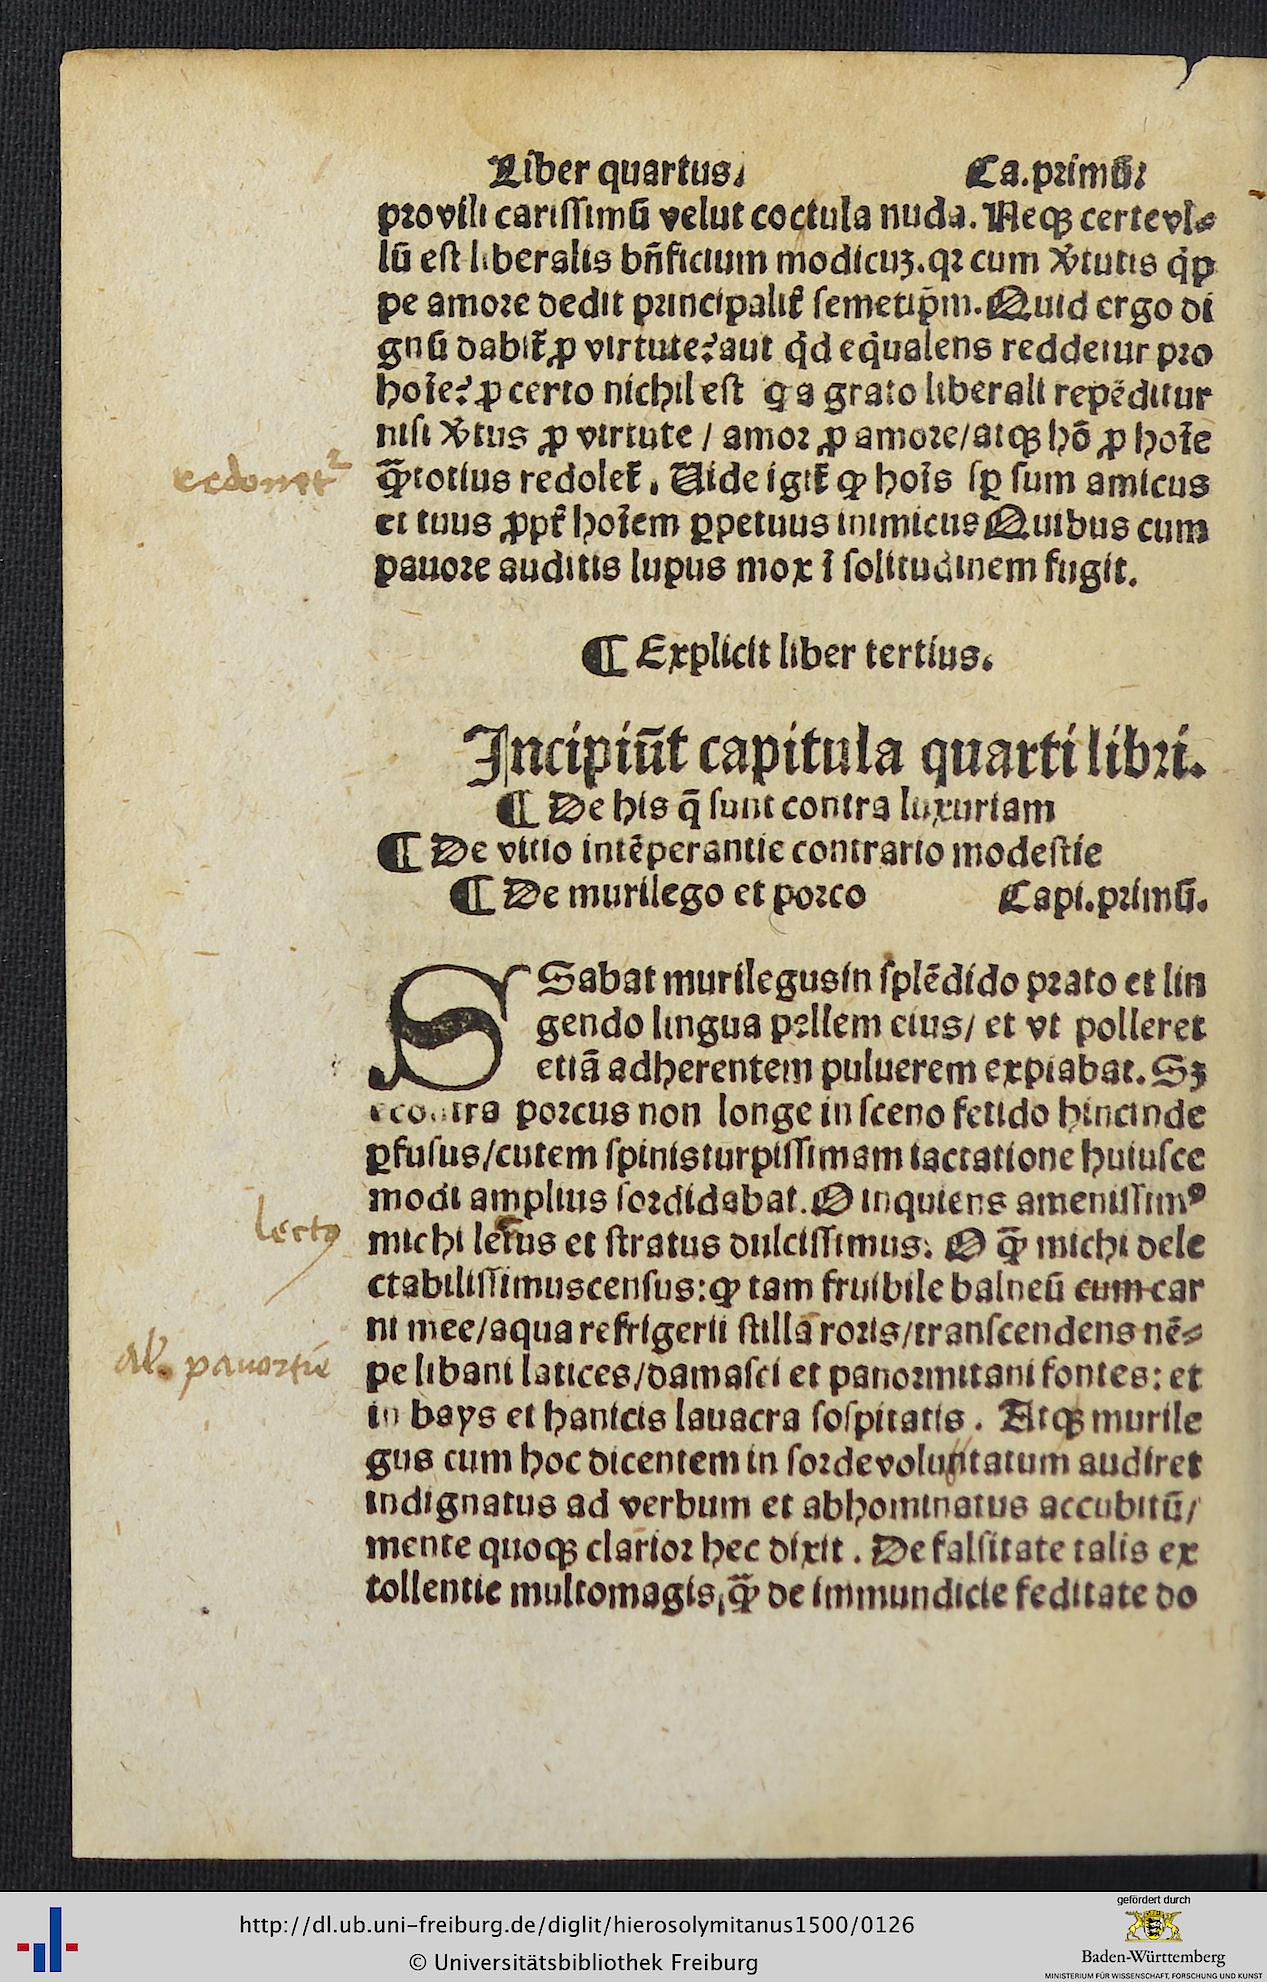 Liber quartus. Ca.primū.
pro vili carissimū velut coctula nuda. Neqꝫ certe vl⸗
lū est liberalis bn̄ficium modicuꝫ. qꝛ cum v̓tutis q̄p
pe amore dedit principalit̓ semetip̄m. Quid ergo di
gnū dabit̄ ꝓ virtute? aut q̄d eq̄ualens reddetur pro
hoīe? ꝓ certo nichil est q a grato liberali repēditur
nisi v̓tus ꝓ virtute / amor ꝓ amore/ atqꝫ hō ꝓ hoīe
redonet
q̄ꝫ totius redolet̄. Uide igit̄ ꝙ hoīs sꝑ sum amicus
et tuus ꝓpt̓ hoīem ꝑpetuus inimicus Quibus cum
pauore auditis lupus mox ī solitudinem fugit.
¶ Explicit liber tertius.
Incipiūt capitula quarti libri.
¶ De his q̄ sunt contra luxuriam
¶ De vitio intēperantie contrario modestie
¶ De murilego et porco Capi.primū.
S Sabat murilegus in splēdido prato et lin
gendo lingua pellem eius/ et vt polleret
etiā adherentem puluerem expiabat. Sꝫ
econtra porcus non longe in sceno fetido hincinde
ꝑfusus/cutem spinis turpissimam iactatione huiusce
modi amplius sordidabat. O inquiens amenissimꝰ
lectꝰ
michi letus et stratus dulcissimus: O q̄ꝫ michi dele
ctabilissimus census: ꝙ tam fruibile balneū cum car
ni mee/aqua refrigerii stilla roris/transcendens nē⸗
al. pauortie
pe libani latices/damasci et panormitani fontes: et
in bays et hanicis lauacra sospitatis. Atqꝫ murile
gus cum hoc dicentem in sorde voluntatum audiret
indignatus ad verbum et abhominatus accubitū/
mente quoqꝫ clarior hec dixit. De falsitate talis ex
tollentie multomagis, q̄ꝫ de immundicie feditate do
http://dl.ub.uni-freiburg.de/diglit/hierosolymitanus1500/0126
© Universitätsbibliothek Freiburg
gefördert durch
Baden-Württemberg
MINISTERIUM FÜR WISSENSCHAFT, FORSCHUNG UND KUNST